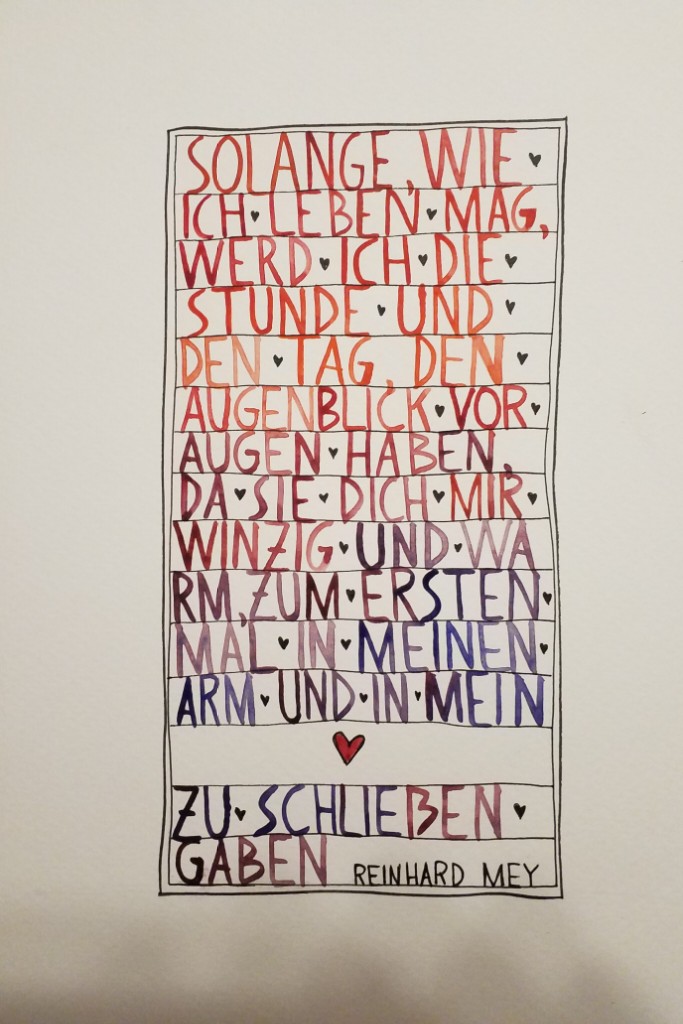 SOLANGE, WIE
ICH LEBEN MAG,
WERD ICH DIE
STUNDE UND
DEN TAG, DEN
AUGENBLICK VOR
AUGEN HABEN,
DA SIE DICH MIR
WINZIG UND WA
RM, ZUM ERSTEN
MAL IN MEINEN
ARM UND IN MEIN
ZU SCHLIEßEN
GABEN REINHARD MEY